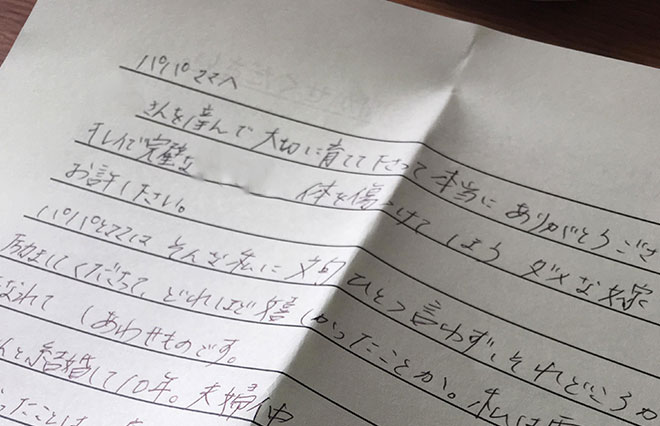 パパ、ママへ
さんを産んで大切に育てて下さって本当にありがとうござ
キレイで完璧な 体を傷つけてしまう ダメな嫁
お許しください。
パパとママは そんな私に 文句ひとつ言わず、それどころか
励ましてくださって、どれほど嬉しかったことか。私は
なれて しあわせものです。
んと結婚して10年。夫婦仲
ったことは